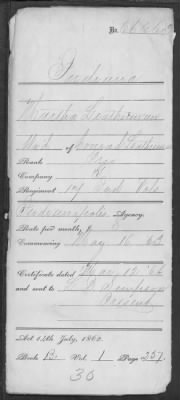 No. 66662
Indiana
Martha Leatherman
Wid of Conrad Leatherman
Rank Priv
Company
Regiment 14 Ind Vols
Indianapolis Agency.
Rate per month, 8
Commencing May 16 62
Certificate dated May 12 '66
and sent to
Present
Act 14th July, 1862.
Book B Vol. 1 Page 257
30